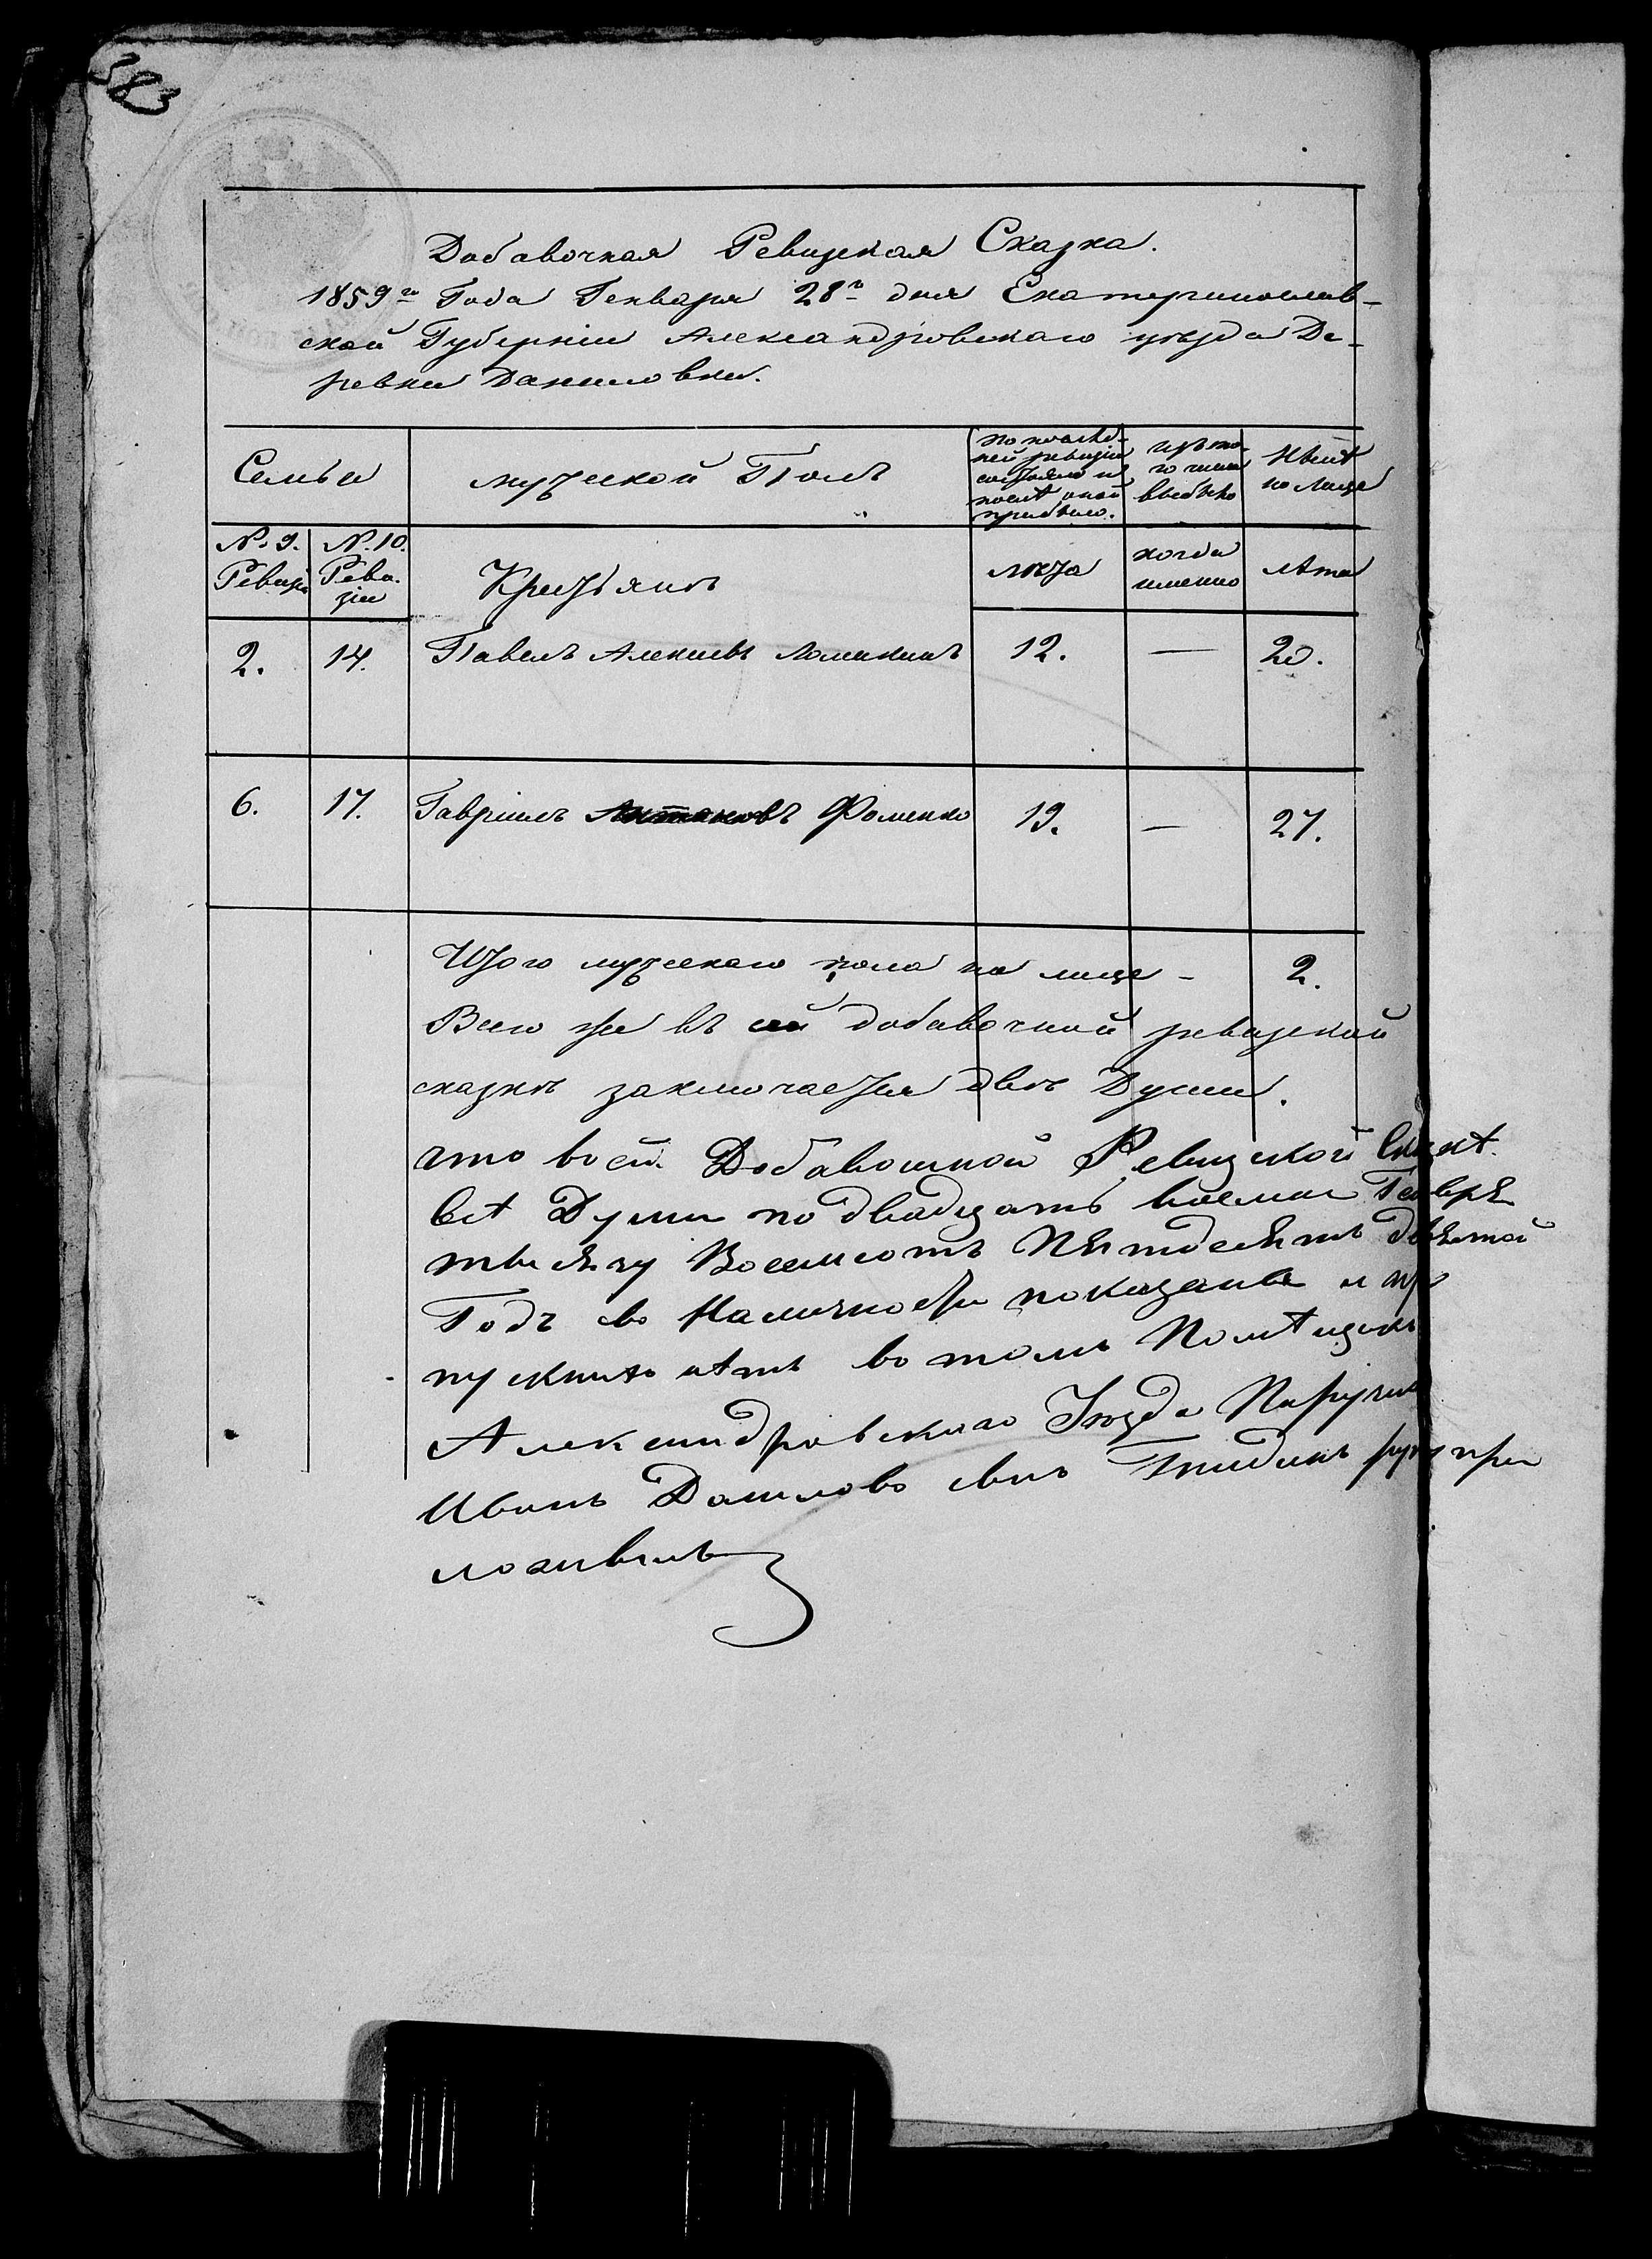 383
Добавочная Ревизская Сказка.
1859го Года Генваря 28го дня Екатеринослав-
ской Губерніи Александровскаго уѣзда Де-
ревни Даниловки.
Семьи
мужеской Полъ
по послѣд-
ней ревизіи
состояло и
послѣ оной
прибыло.
изъ то-
го числа
выбыло
Нынѣ
на лице
№ 9.
Ревизіи
№ 10.
Реви-
зіи
Крестьянъ
лѣта
когда
именно
лѣта
2. 14. Павелъ Алексѣевъ 12. — 20.
6. 17. Гавріилъ Антоновъ Фоменко 19. — 27.
Итого мужескаго пола на лице - 2.
Всего же въ сей добавочной ревизской
сказкѣ заключается двѣ Души.
что во сей Добавошной Ревизской Сказкѣ
всѣ Души по двадцать восмое Генвря
тысячу Восемсотъ Пятдесятъ девятой
Годъ во Наличности показаны и про
пускныхъ нѣтъ во томъ Помѣщикъ
Александровскаго Уѣзда Паручикъ
Иванъ Данилово сынъ руку при
ложивъ